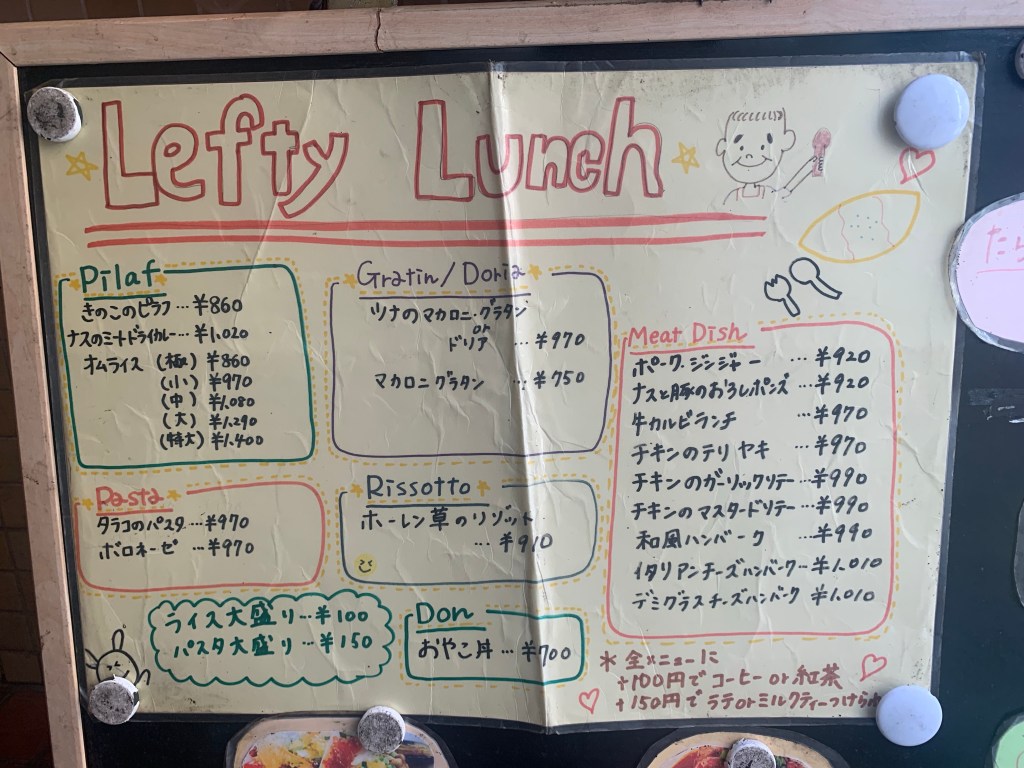 Lefty Lunch
Pilaf
きのこのピラフ…¥860
ナスのミートドライカレー…¥1,020
オムライス (極) ¥860
(小) ¥970
(中) ¥1,080
(大) ¥1,290
(特大) ¥1,400
Gratin/Doria
ツナのマカロニ・グラタン
or
ドリア …¥970
マカロニグラタン …¥750
Pasta
タラコのパスタ…¥970
ボロネーゼ …¥970
Rissotto
ホーレン草のリゾット
…¥910
ライス大盛り…¥100
パスタ大盛り …¥150
Don
おやこ丼…¥700
Meat Dish
ポーク・ジンジャー …¥920
ナスと豚のおろしポンズ…¥920
牛カルビランチ …¥970
チキンのテリヤキ …¥970
チキンのガーリックソテー…¥990
チキンのマスタードソテー…¥990
和風ハンバーク …¥990
イタリアンチーズハンバーク…¥1,010
デミグラスチーズハンバーク ¥1,010
*全メニューに
+100円でコーヒーor紅茶
+150円でラテorミルクティーつけられ
たら